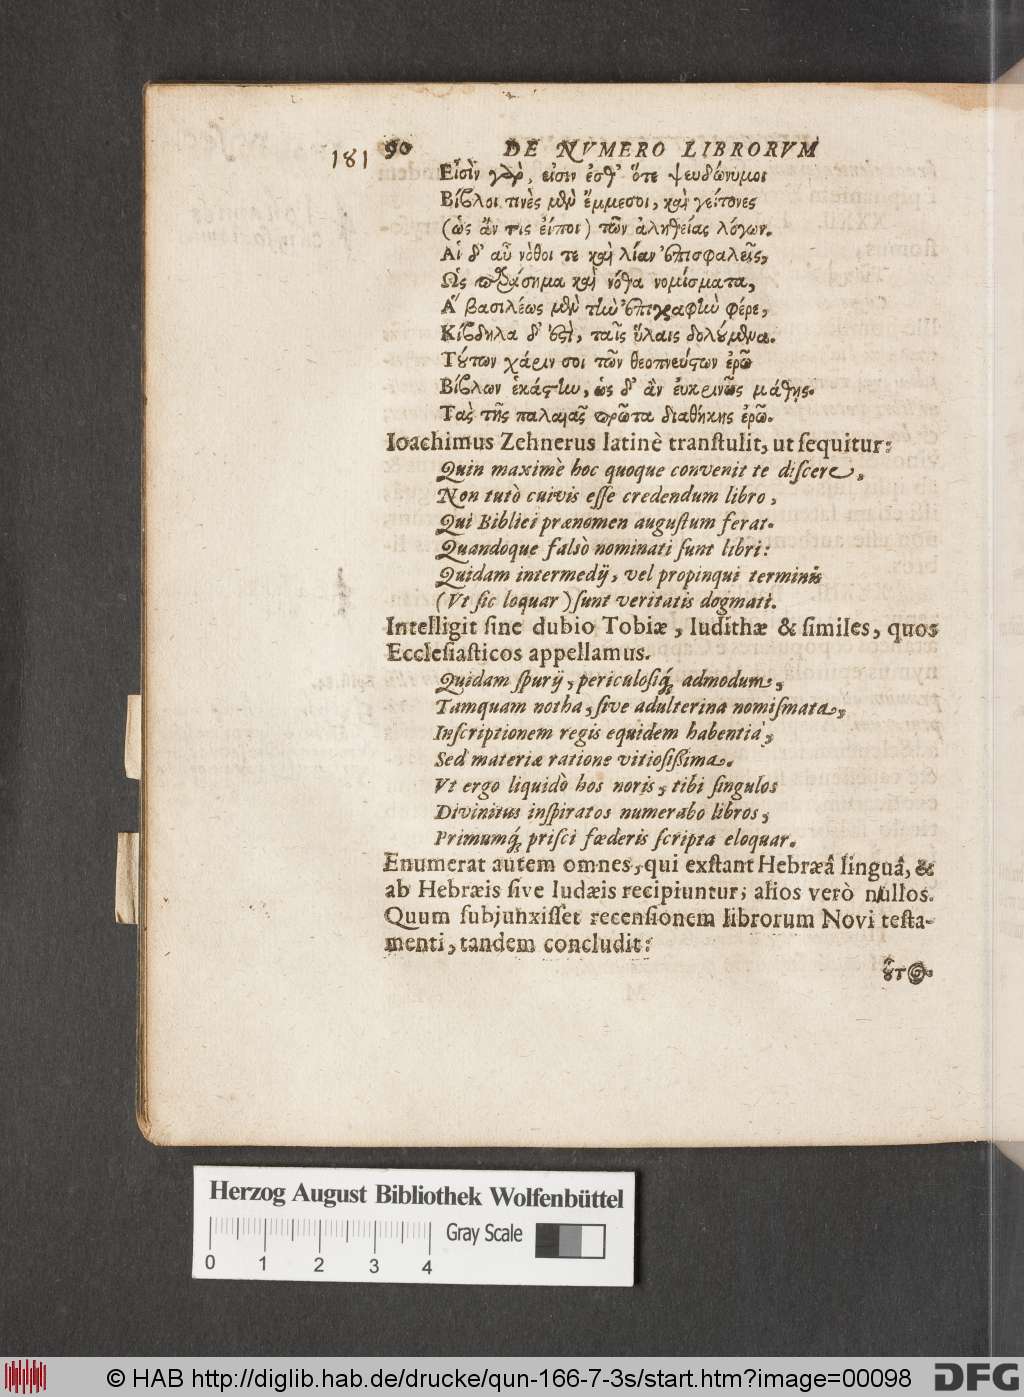 181
90 DE NVMERO LIBRORVM
Εἰσὶν γὰρ, εἰσιν ἐσθ' ὅτε ψευδώνυμοι
Βίβλοι τινὲς μὲν ἔμμεσοι, καὶ γείτονες
(ὡς ἄν τις εἴποι) τῶν ἀληθείας λόγων.
Αἱ δ' αὖ νόθοι τε καὶ λίαν ἐπισφαλεῖς,
Ὡς παράσημα καὶ νόθα νομίσματα,
Ἃ βασιλέως μὲν τὴν ἐπιγραφὴν φέρει,
Κίβδηλα δ' ἐστὶ, ταῖς ὕλαις δολούμενα.
Τούτων χάριν σοι τῶν θεοπνεύστων ἐρῶ
Βίβλων ἑκάστην, ὡς δ' ἂν εὐκρινῶς μάθῃς.
Τὰς τῆς παλαιᾶς πρῶτα διαθήκης ἐρῶ.
Ioachimus Zehnerus latinè tranſtulit, ut ſequitur:
Quin maximè hoc quoque convenit te diſcere,
Non tutò cuivis eſſe credendum libro,
Qui Bibliei prænomen auguſtum ferat.
Quandoque falsò nominati ſunt libri:
Quidam intermedij, vel propinqui terminis
(Vt ſic loquar) ſunt veritatis dogmati.
Intelligit ſine dubio Tobiæ, Iudithæ & ſimiles, quos
Eccleſiaſticos appellamus.
Quidam ſpurij, periculoſiq́; admodum,
Tamquam notha, ſive adulterina nomiſmata,
Inſcriptionem regis equidem habentia,
Sed materiæ ratione vitioſißima.
Vt ergo liquidò hos noris, tibi ſingulos
Divinitus inſpiratos numerabo libros,
Primumq́; priſci fœderis ſcripta eloquar.
Enumerat autem omnes, qui exſtant Hebræâ linguâ, &
ab Hebræis ſive Iudæis recipiuntur; alios verò nullos.
Quum ſubjunxiſſet recenſionem librorum Novi teſta-
menti, tandem concludit:
οὗτος
Herzog August Bibliothek Wolfenbüttel
Gray Scale
0 1 2 3 4
© HAB http://diglib.hab.de/drucke/qun-166-7-3s/start.htm?image=00098
DFG